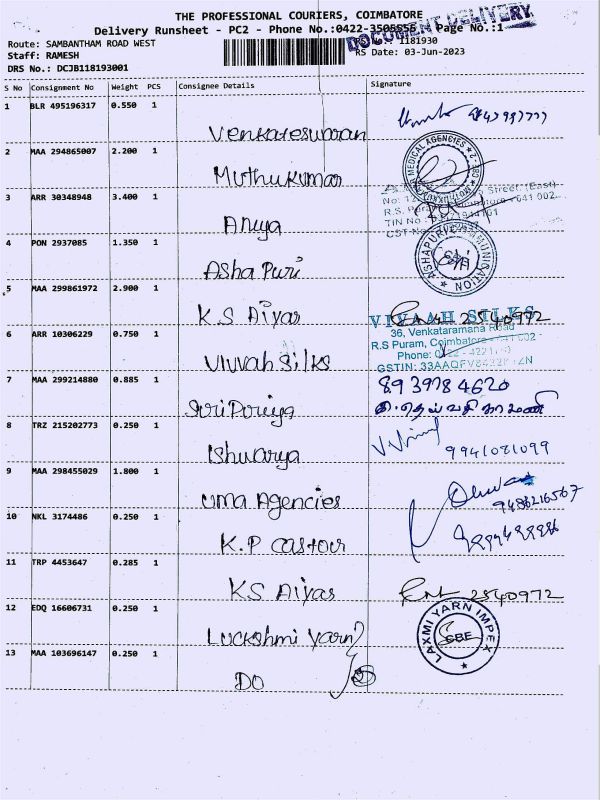 THE PROFESSIONAL COURIERS, COIMBATORE
Delivery Runsheet - PC2 - Phone No.:0422-3505556 Page No.:1
DOCUMENT DELIVERY
Route: SAMBANTHAM ROAD WEST 1181930
Staff: RAMESH RS Date: 03-Jun-2023
DRS No.: DCJB118193001
S No Consignment No Weight PCS Consignee Details Signature
1 BLR 495196317 0.550 1
Venkateswaran
2 MAA 294865007 2.200 1
MEDICAL AGENCIES
Muthukumar
3 ARR 30348948 3.400 1
Street (East)
641 002
TIN No
Anuya
CST No
4 PON 2937085 1.350 1
ASHAPURI COMMUNICATION
Asha Puri
5 MAA 299861972 2.900 1
K.S Aiyar 2540972
6 ARR 10306229 0.750 1
VIVAAH SILKS
36, Venkataramana Road
R.S Puram, Coimbatore - 641 002
Phone: 0422 - 4221
GSTIN: 33AAQFV
Vivvah Silks
7 MAA 299214880 0.885 1
8939784620
8 TRZ 215202773 0.250 1
Ishwarya 9941081099
9 MAA 298455029 1.800 1
Uma Agencies
9486216567
10 NKL 3174486 0.250 1
K.P
11 TRP 4453647 0.285 1
KS Aiyar 2540972
12 EDQ 16606731 0.250 1
LAXMI YARN IMPEX
CBE
Luckshmi Yarn
13 MAA 103696147 0.250 1
DO